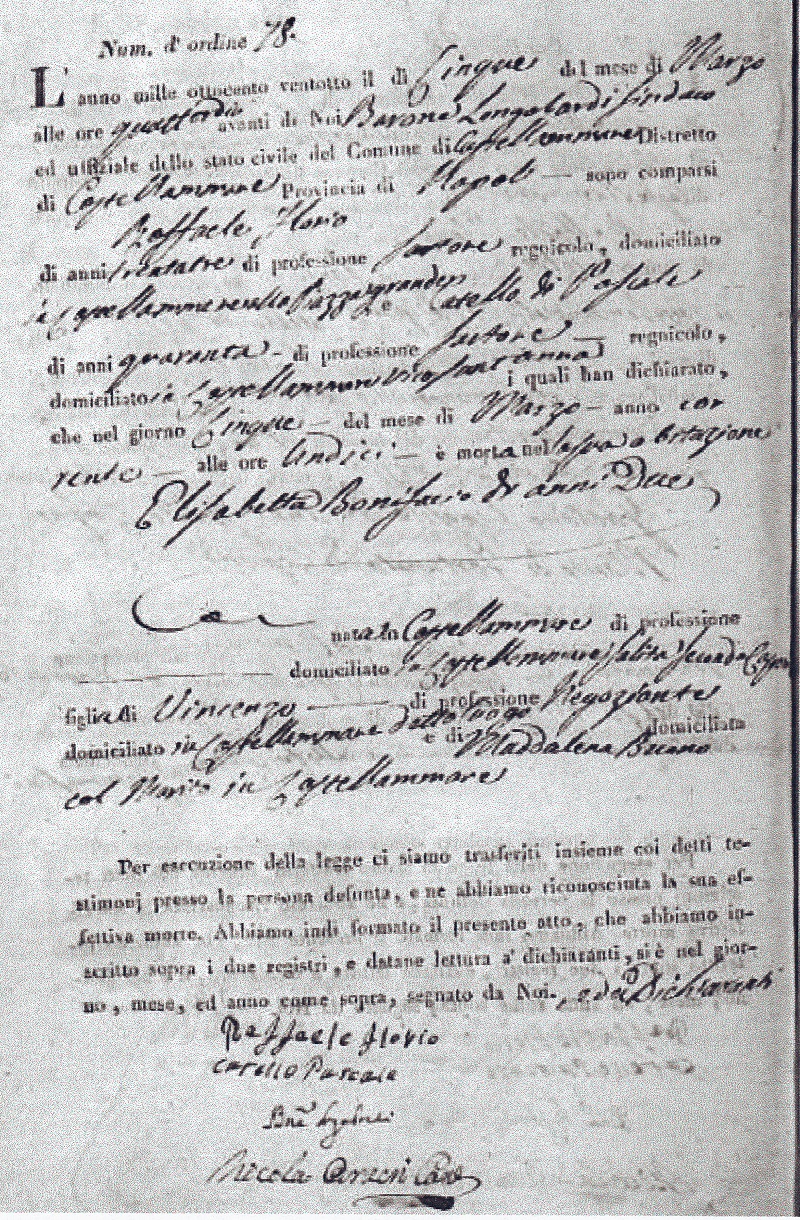 Num. d' ordine 78.
L' anno mille ottocento ventotto il di Cinque del mese di Marzo
alle ore quattordici avanti di Noi Barone Longobardi Sindaco
ed uffiziale dello stato civile del Comune di Castellammare Distretto
di Castellammare Provincia di Napoli — sono comparsi
Raffaele Florio
di anni trentatre di professione Sartore regnicolo, domiciliato
in Castellammare Piazza grande e Catello di Pascale
di anni quaranta - di professione Sartore — regnicolo,
domiciliato in Castellammare vico Sant'anna i quali han dichiarato,
che nel giorno Cinque — del mese di Marzo — anno cor
rente — alle ore Undici — è morta nel a abitazione
Elisabetta Bonifacio di anni Due
nata in Castellammare di professione
— domiciliato in Castellammare salita
figlia di Vincenzo — di professione Negoziante
domiciliato in Castellammare detto luogo e di Maddalena Buono domiciliata
col Marito in Castellammare
Per esecuzione della legge ci siamo trasferiti insieme coi detti te-
stimonj presso la persona defunta, e ne abbiamo riconosciuta la sua ef-
fettiva morte. Abbiamo indi formato il presente atto, che abbiamo in-
scritto sopra i due registri, e datane lettura a' dichiaranti, si è nel gior-
no, mese, ed anno come sopra, segnato da Noi. e da Dichiaranti
Raffaele Florio
Catello Pascale
Nicola